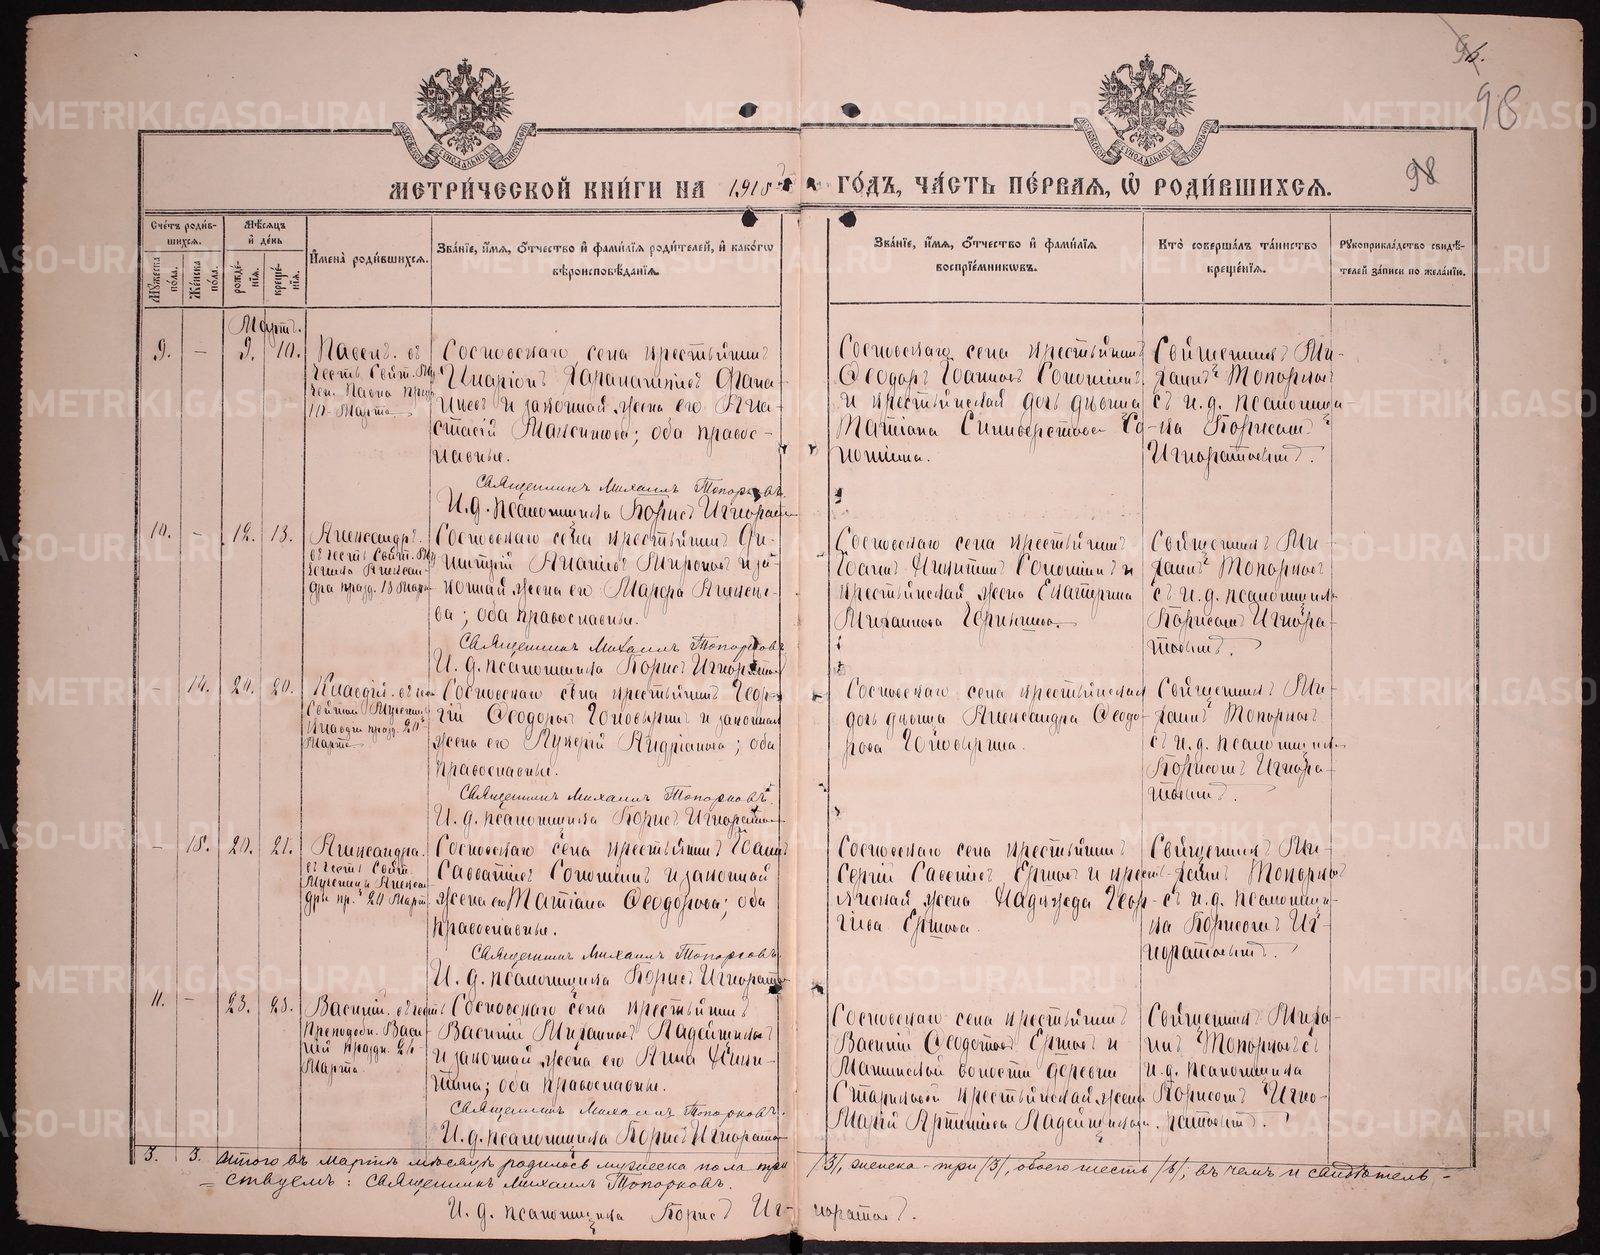 96.
98
98
МЕТРИ́ЧЕСКОЙ КНИ́ГИ НА 1918 ГО́ДЪ, ЧА́СТЬ ПЕ́РВАЯ, Ѡ РОДИ́ВШИХСЯ.
Сче́тъ роди́вшихся.
Му́жеска по́ла.
Же́нска по́ла.
Мѣ́сяцъ и де́нь
рожде́нїя.
креще́нїя.
И҆мена̀ роди́вшихся.
Зва́нїе, и҆́мя, ѻ҆́тчество и҆ фами́лїя роди́телей, и҆ како́гѡ вѣроисповѣ́данїя.
Зва́нїе, и҆́мя, ѻ҆́тчество и҆ фами́лїя воспрїе́мникѡвъ.
Кто̀ соверша́лъ та́инство креще́нїя.
Рꙋкоприкла́дство свидѣ́телей за́писи по жела́нїю.
Мартъ.
9. – 9. 10.
Павелъ. въ
честь Свят. Му
чен. Павла празд
10 Марта
Сосновскаго села крестьянинъ
Иларіонъ Харалампіевъ
и законная жена его Ана-
стасія Максимова; оба правос-
лавные.
Священникъ Михаилъ Топорковъ.
И. д. псаломщика Борисъ Игноратовъ
Сосновскаго села крестьянинъ
Ѳеодоръ Іоанновъ Сопотинъ
и крестьянская дочь дѣвица
Татіана Сильверстова Со
потина.
Священникъ Ми-
хаилъ Топорковъ
съ и. д. псаломщи-
ка Борисомъ
Игноратовымъ.
10. – 12. 13.
Александръ
въ честь Свят. Му
ченика Алексан-
дра празд. 13 Марта
Сосновскаго села крестьянинъ Ди-
митрій Ананіевъ Мироновъ и за-
конная жена его Марѳа Алексѣе-
ва; оба православные.
Священникъ Михаилъ Топорковъ
И. д. псаломщика Борисъ Игноратовъ
Сосновскаго села крестьянинъ
Іоаннъ Никитинъ Сопотинъ и
крестьянская жена Екатерина
Михаилова
Священникъ Ми-
хаилъ Топорковъ
съ и. д. псаломщика
Борисомъ Игнора-
товымъ.
– 14. 20. 20.
Клавдія. въ честь
Святой Мученицы
Клавдіи празд. 20
Марта
Сосновскаго села крестьянинъ Геор-
гій Ѳеодоровъ и законная
жена его Лукерія Андріанова; оба
православные.
Священникъ Михаилъ Топорковъ.
И. д. псаломщика Борисъ Игноратовъ
Сосновскаго села крестьянская
дочь дѣвица Александра Ѳеодо-
рова
Священникъ Ми-
хаилъ Топорковъ
съ и. д. псаломщика
Борисомъ Игнора-
товымъ.
– 15. 20. 21.
Александра.
въ честь Свят.
Мученицы Алексан
дры пр. 20 Марта
Сосновскаго села крестьянинъ Іоаннъ
Савватіевъ Сопотинъ и законная
жена его Татіана Ѳеодорова; оба
православные.
Священникъ Михаилъ Топорковъ.
И. д. псаломщика Борисъ Игноратовъ
Сосновскаго села крестьянинъ
Сергій Савеліевъ Ершовъ и кресть-
янская жена Надежда Геор-
гіева Ершова.
Священникъ Ми-
хаилъ Топорковъ
съ и. д. псаломщи-
ка Борисомъ Иг-
норатовымъ.
11. – 23. 25.
Василій. въ честь
Преподобн. Васи-
лія праздн. 26
Марта.
Сосновскаго села крестьянинъ
Василій Михаиловъ Ладейщиковъ
и законная жена его Анна Ники-
тина; оба православные.
Священникъ Михаилъ Топорковъ.
И. д. псаломщика Борисъ Игноратовъ
Сосновскаго села крестьянинъ
Василій Ѳеодотовъ Ершовъ и
волости деревни
крестьянская жена
Марія Ладейщикова.
Священникъ Миха-
илъ Топорковъ съ
и. д. псаломщика
Борисомъ Игно-
ратовымъ.
3. 3. Итого въ Мартѣ мѣсяцѣ родилось мужеска пола три /3/, женска – три /3/, обоего шесть /6/; въ чемъ и свидѣтель-
ствуемъ: Священникъ Михаилъ Топорковъ.
И. д. псаломщика Борисъ Игноратовъ.